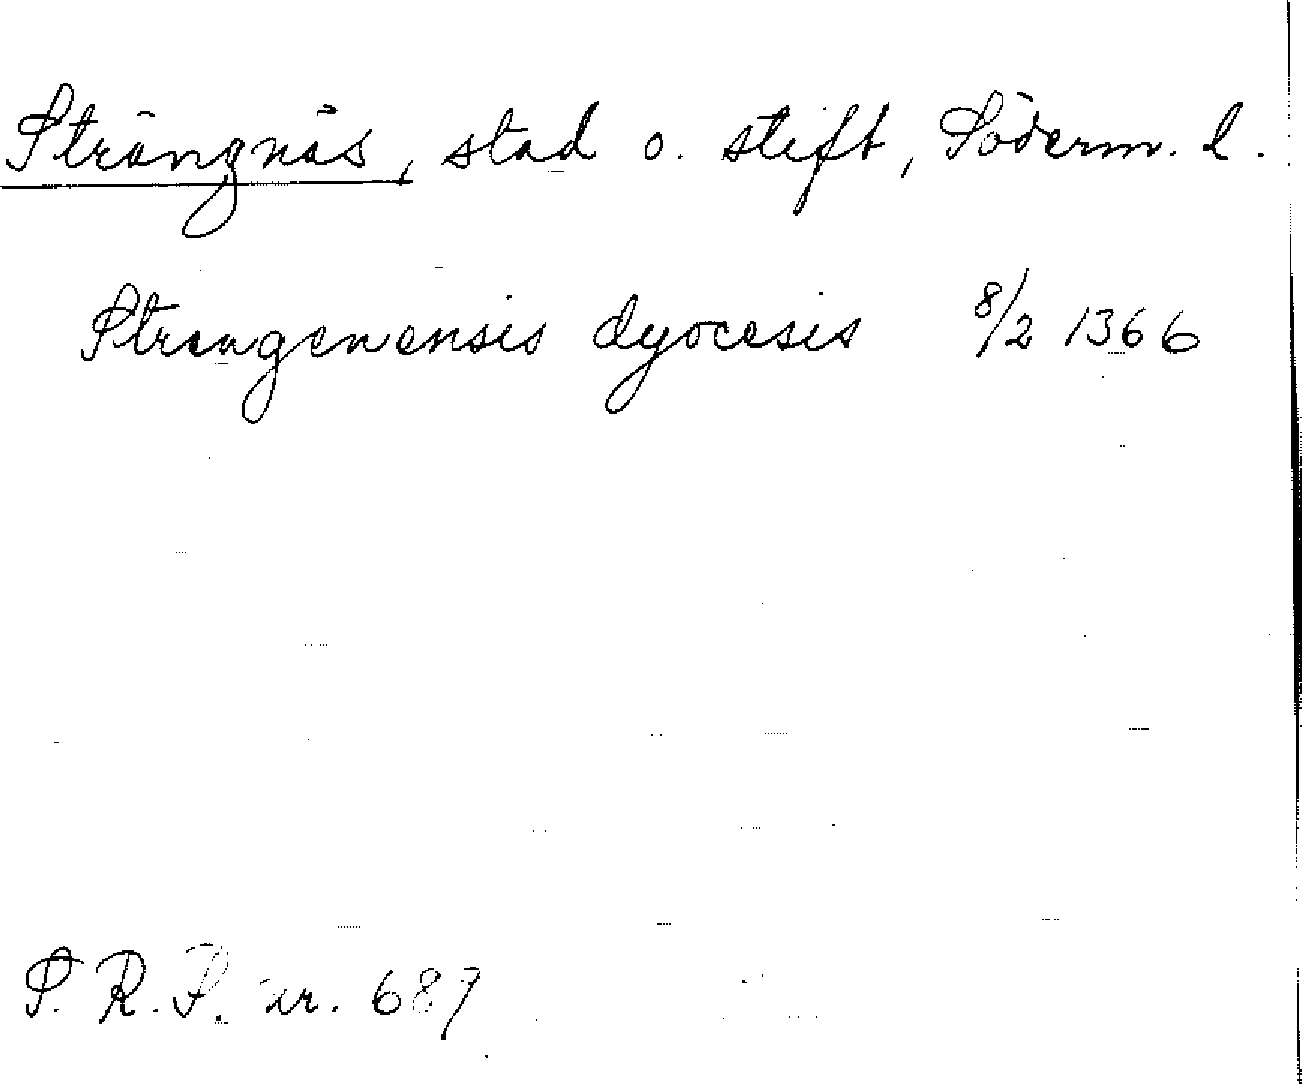 Strängnäs, stad o. stift, Söderm. l.
Strengenensis dyocesis 8/2 1366
S. R. P. nr. 687